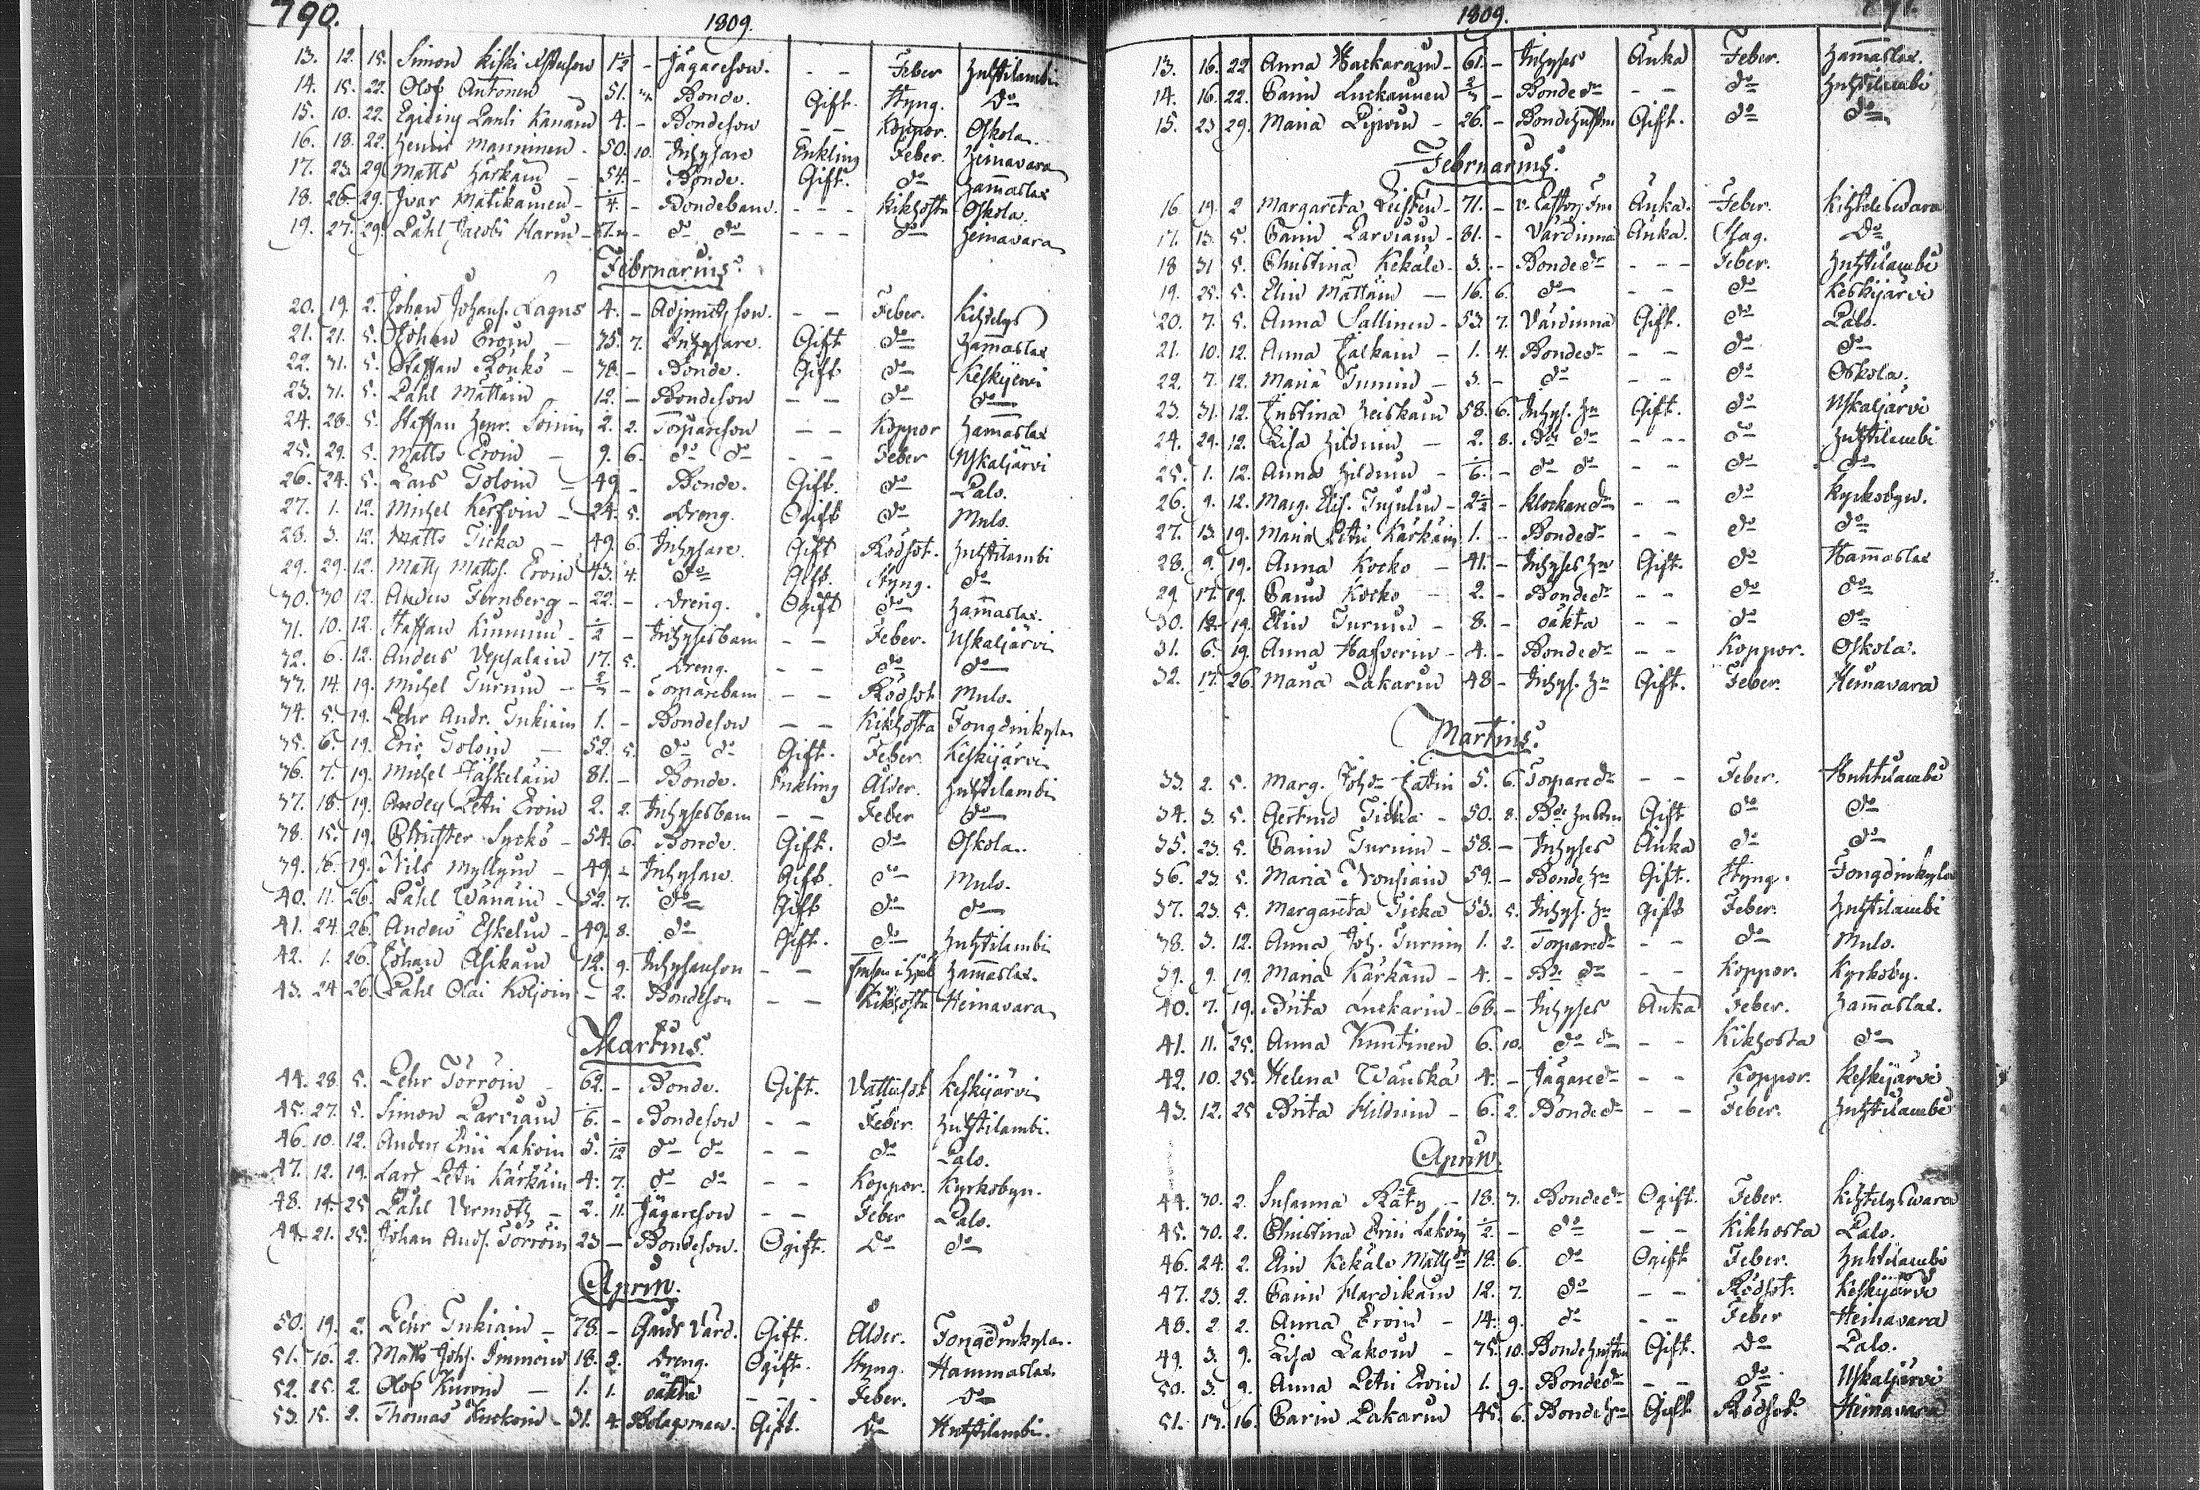 790.
1809.
13. 12. 15. Simon Kiski 1/2 - Jägareson. - - Feber Huhtilambi
14. 15. 22. Olof Antonen - 51. Bonde. Gift. Styng. do
15. 10. 22. Lauli 4. - Bondeson - - Koppor. Oskola
16. 18. 22. Henric Manninen - 50. 10. Inhysare Enkling Feber. Heinavara
17. 23. 29. Matts Kärkäin - 54. - Bonde. Gift. do Hammaslax
18. 26. 29. Ivar Matikainen - 4. - Bondebarn - - - Kikhosta Oskola.
19. 27. 29. Påhl Jacobi do do - - - do Heinavara
Februarius.
20. 19. 2. Johan Johans. Lagus 4. - Adjuncts son. - - Feber. Kihtelys
21. 21. 5. Johan Eroin - 35. 7. Inhysare. Gift do Hammaslax
22. 31. 5. Staffan Rouko - 38. - Bonde. Gift do Keskijervi
23. 31. 5. Påhl Mattäin 12. - Bondeson - - do do
24. 28. 5. Staffan Henr. Soinin 2. 2. Torpareson - - Koppor Hammaslax
25. 29. 5. Matts Eroin - 9. 6. do do - - Feber Uskaljärvi
26. 24. 5. Lars Toloin - 49. - Bonde. Gift. do Palo.
27. 1. 12. Michel Kerfvin - 24. 5. Dreng. Ogift do Mulo.
28. 3. 12. Matts Ticka - 49. 6. Inhysare. Gift Rödsot. Huhtilambi
29. 29. 12. Matts Mattss. Eroin 43. 4. do Gift. Styng. do
30. 30 12. Anders Fernberg - 22. - Dreng. Ogift do Hammaslax.
31. 10. 12. Staffan Kinnuin - 2 - Inhysesbarn - - Feber. Uskaljärvi
32. 6. 12. Anders Vepsäläin 17. 5. Dreng. - - do do
33. 14. 19. Michel Turuin - - Torparebarn - - Rödsot Mulo.
34. 5. 19. Pehr Andr. Tukiain 1. - Bondeson - - Kikhosta Jongdinkyla
35. 6. 19. Eric Toloin - 52. 5. do do Gift. Feber. Keskijärvi
36. 7. 19. Michel Jäskeläin 81. - Bonde. Enkling Ålder. Huhtilambi
37. 18. 19. Anders Petri Eroin 2. 2. Inhysesbarn - - Feber do
38. 15. 19. Christer Sycko - 54. 6. Bonde. Gift. do Oskola.
39. 16. 19. Nils Myllyin - 49. - Inhysare Gift. do Mulo.
40. 11. 26. Påhl Wänäin - 52. 7. do Gift do do
41. 24. 26. Anders Eskelin - 49. 8. do Gift. do Huhtilambi
42. 1. 26. Johan Asikain 12. 9. Inhysareson - - Hammaslax.
43. 24 26. Påhl Olai Koljoin - 2. Bondeson - - Kikhosta Heinavara
Martius.
44. 28. 5. Pehr Törröin - 62. - Bonde. Gift. Vattusot Keskijärvi
45. 27. 5. Simon Parviain 6. - Bondeson - - Feber. Huhtilambi.
46. 10. 12. Anders Erici Lakoin 5. do do - - do Palo.
47. 12. 19. Lars Petri Kärkäin 4. 7. do do - - Koppor. Kyrkobyn.
48. 14. 25 Påhl Vermots - 2. 11. Jägareson - - Feber Palo.
49. 21. 25. Johan Ands. Törröin 23 - Bondeson. Ogift. do do
Aprill.
50. 19. 2. Pehr Tukiain - 78. - Gårds Värd. Gift. Ålder. Jongdinkyla.
51. 16. 2. Matts Johs. Immoin 18. 3. Dreng. Ogift. Styng. Hammaslax.
52. 25. 2. Olof - 1. 1. oäkta - - - Feber. do
53. 15. 2. Thomas - 31. 4. Bolagsman. Gift. do Huhtilambi.
1809.
13. 16. 22 Anna Hackarain - 61. - Inhyses Änka Feber. Hammaslax.
14. 16. 22. Carin Luckainnen - Bonde dr - - do Huhtilambi
15. 23 29. Maria - 26. - Bondehustru Gift. do do
Februarius.
16. 19. 2 Margareta Leisten - 71. - Änka. Feber. Kihtelswara
17. 13. 5. Carin Parviain - 81. - Värdinna Änka. Hag. do
18 31 5. Christina Kekäle - 3. - Bonde dr - - - Feber. Huhtilambi
19. 25. 5. Elin Mattäin - 16. 6. do - - do Keskijärvi
20. 7. 5. Anna Sallinen - 53. 7. Värdinna Gift. do Palo.
21. 10. 12. Anna - 1. 4. Bonde dr - - do do
22. 7. 12. Maria - 3. - do - - do Oskola.
23. 31. 12. Justina Heiskain 58. 6. Inhys. Hu Gift. do Uskaljärvi
24. 29. 12. Lisa Hilduin - 2. 8. do do - - - do Huhtilambi
25. 1. 12. Anna Hilduin - 6. - do do - - do do
26. 9. 12. Marg. Elis. - 2 - Klockare dr - - do Kyrkobyn.
27. 13. 19. Maria Petri Kärkäin 1. - Bonde dr - - do do
28. 9. 19. Anna Kocko - 41. - Inhyses Hu Gift. do Hammaslax
29. 17. 19. Carin Kocko - 2. - Bonde dr - - do do
30. 12. 19. Elin Turuin - 8. - oäkta - - do do
31. 6. 19. Anna Hafverin - 4. - Bonde dr - - Koppor. Oskola.
32. 17. 26. Maria Pakarin 48 - Inhys. Hu Gift. Feber. Heinavara
Martius.
33. 2. 5. Marg. 5. 6. Torpare dr - - Feber. Huhtilambi
34. 3. 5. Gertrud Ticka - 50. 8. Gift do do
35. 23. 5. Carin Turuin - 58. - Inhyses Änka do do
36. 23. 5. Maria Nousiain 59. - Bonde Hu Gift. Styng. Jongdinkyla
37. 23. 5. Margareta Ticka 53. 5. Inhys. Hu Gift Feber. Huhtilambi
38. 3. 12. Anna Joh. Turuin 1. 2. Torpare dr - - do Mulo.
39. 9. 19. Maria Kärkäin - 4. - do - - Koppor. Kyrkoby.
40. 7. 19. Brita Luckarin - 68. - Inhyses Änka Feber. Hammaslax.
41. 11. 25. Anna Knutinen 6. 10. do do - - Kikhosta do
42. 10. 25. Helena Wänskä 4. - Jägare dr - - Koppor. Keskijärvi
43. 12. 25 Brita Hilduin - 6. 2. Bonde dr - - Feber. Huhtilambi
Aprill.
44. 30. 2. Susanna Räty - 18. 7. Bonde dr Ogift. Feber. Kihtelyswara
45. 30. 2. Christina Erici Lakoin 2. - do - - Kikhosta Palo.
46. 24. 2. Elin Kekäle Matts dr 18. 6. do Ogift Feber. Huhtilambi
47. 23. 2. Carin Hardikain 12. 7. do - - Rödsot. Keskijärvi
48. 2 2. Anna Eroin - 14. 9. do - - Feber Heinavara
49. 3. 9. Lisa Lakoin - 75. 10. Bondehustru Gift. do Palo.
50. 3. 9. Anna Petri Eroin 1. 9. Bonde dr - - do Uskaljärvi
51. 17. 16. Carin Pakarin 45. 6. Bonde Hu Gift. Rödsot. Heinavara